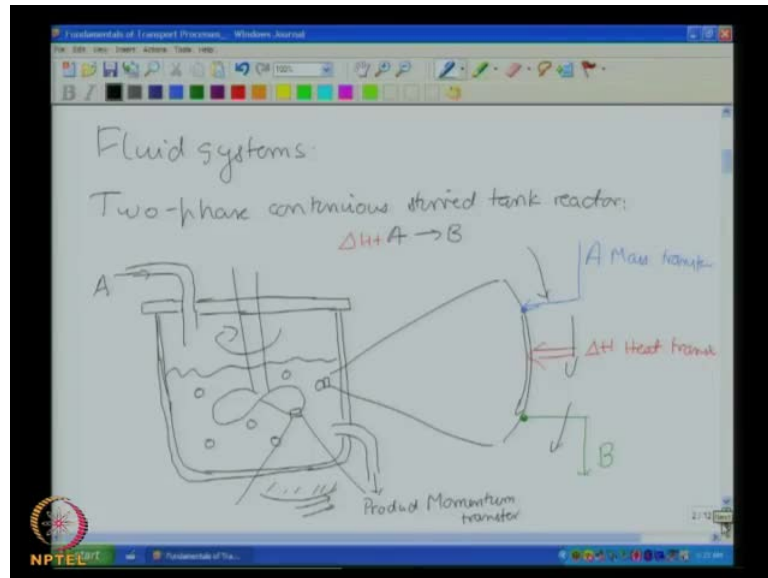 Fundamentals of Transport Processes_ - Windows Journal
File Edit View Insert Actions Tools Help
100%
B I
Fluid systems.
Two-phase continuous stirred tank reactor:
ΔH+ A → B
A
A Mass transfer
ΔH Heat transf
B
Product Momentum
transfer
2 / 12
NPTEL
start
Fundamentals of Tra...